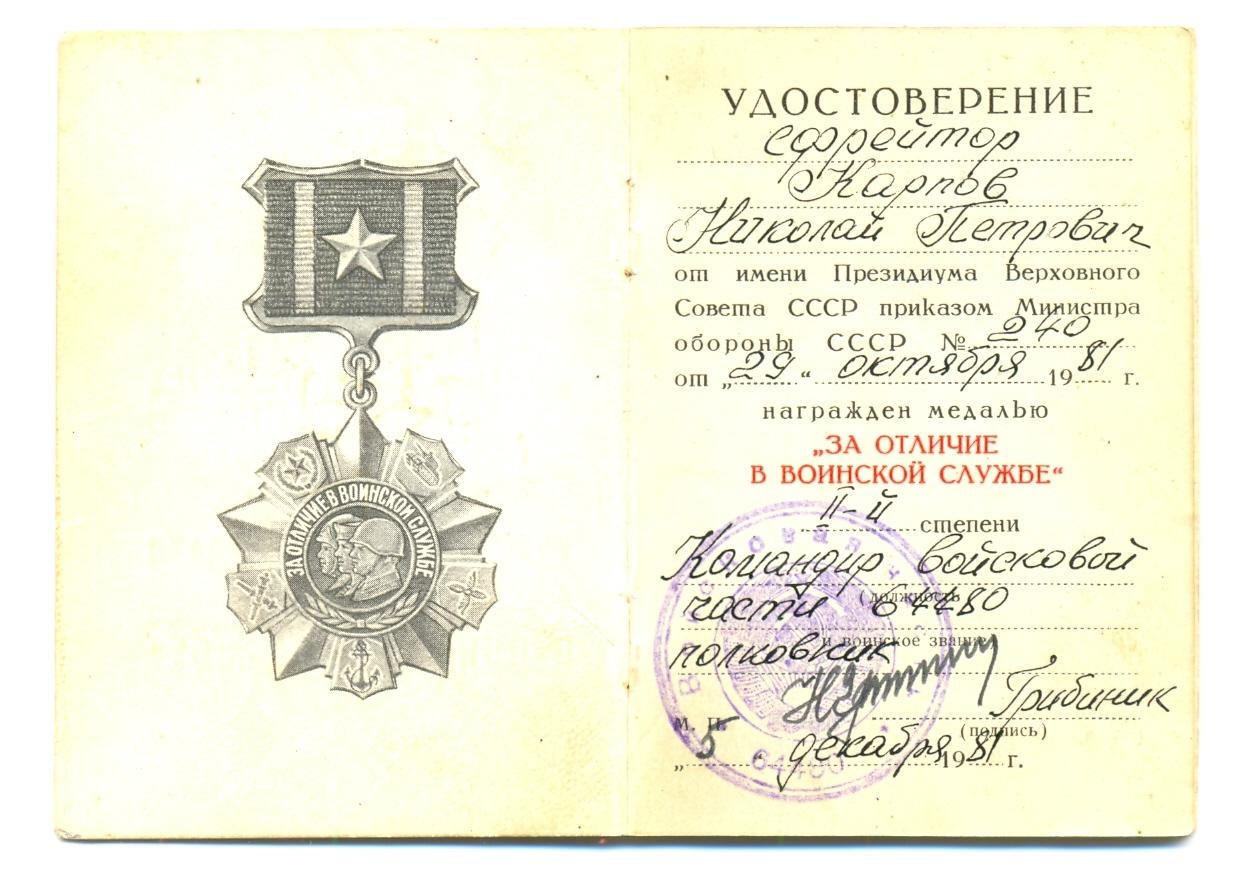 ЗА ОТЛИЧИЕ В ВОИНСКОЙ СЛУЖБЕ
УДОСТОВЕРЕНИЕ
ефрейтор
Карпов
Николай Петрович
от имени Президиума Верховного
Совета СССР приказом Министра
обороны СССР № 240
от „29“ октября 1981 г.
награжден медалью
„ЗА ОТЛИЧИЕ
В ВОИНСКОЙ СЛУЖБЕ“
II-й степени
Командир войсковой
(должность
части
и воинское звание)
полковник
Грибиник
м. п. (подпись)
„5“ декабря 1981 г.